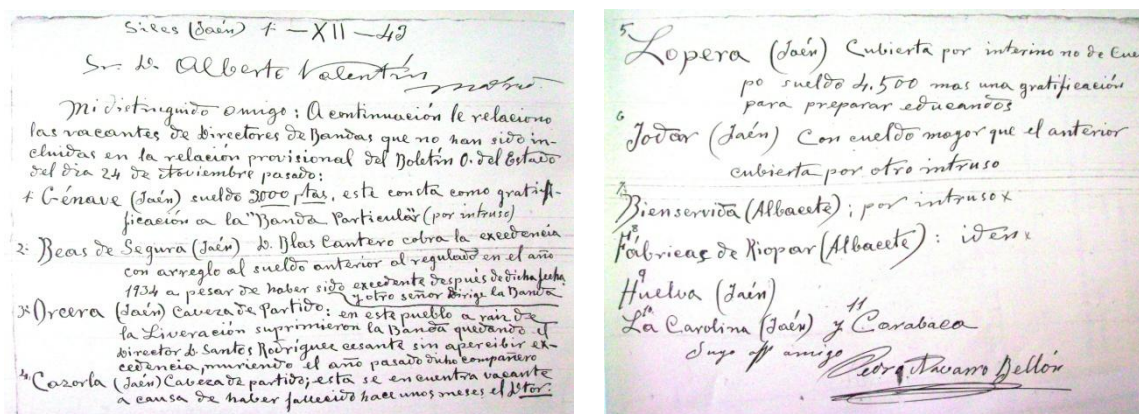 Siles (Jaén) 1 - XII - 43
Sr. D. Alberto Valentín
Madrid.
Mi distinguido amigo: A continuación le relaciono
las vacantes de Directores de Bandas que no han sido in-
cluidas en la relación provisional del Boletín O. del Estado
del día 24 de Noviembre pasado:
1 Génave (Jaén) sueldo 3000 ptas, este consta como gratifi-
ficación a la "Banda Particular" (por intruso)
2- Beas de Segura (Jaén) D. Blas Cantero cobra la excedencia
con arreglo al sueldo anterior al regulado en el año
1934 a pesar de haber sido excedente después de dicha fecha
y otro señor dirige la Banda
3ª Orcera (Jaén) Caveza de Partido: en este pueblo a raiz de
la Liveración suprimieron la Banda quedando el
Director D. Santos Rodríguez cesante sin apercibir ex-
cedencia, muriendo el año pasado dicho compañero
4- Cazorla (Jaén) Caveza de partido; esta se encuentra vacante
a causa de haber fallecido hace unos meses el Dtor.
5 Lopera (Jaén) Cubierta por interino no de Cuer
po sueldo 4,500 mas una gratificación
para preparar educandos
6 Jodar (Jaén) Con sueldo mayor que el anterior
cubierta por otro intruso
7 Bienservida (Albacete); por intruso x
8 Fábricas de Riopar (Albacete): iden x
9 Huelva (Jaén)
10 La Carolina (Jaén) y 11 Carabaca
Suyo aff amigo
Pedro Navarro Bellón